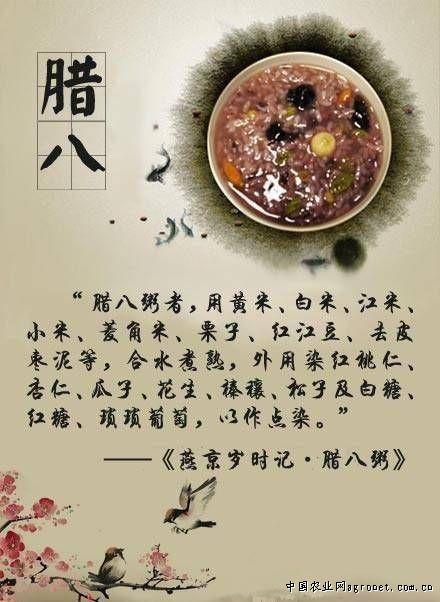 腊八
“腊八粥者，用黄米、白米、江米、
小米、菱角米、栗子、红江豆、去皮
枣泥等，合水煮熟，外用染红桃仁、
杏仁、瓜子、花生、榛穰、松子及白糖、
红糖、琐琐葡萄，以作点染。”
——《燕京岁时记·腊八粥》
中国农业网agronet.com.cn